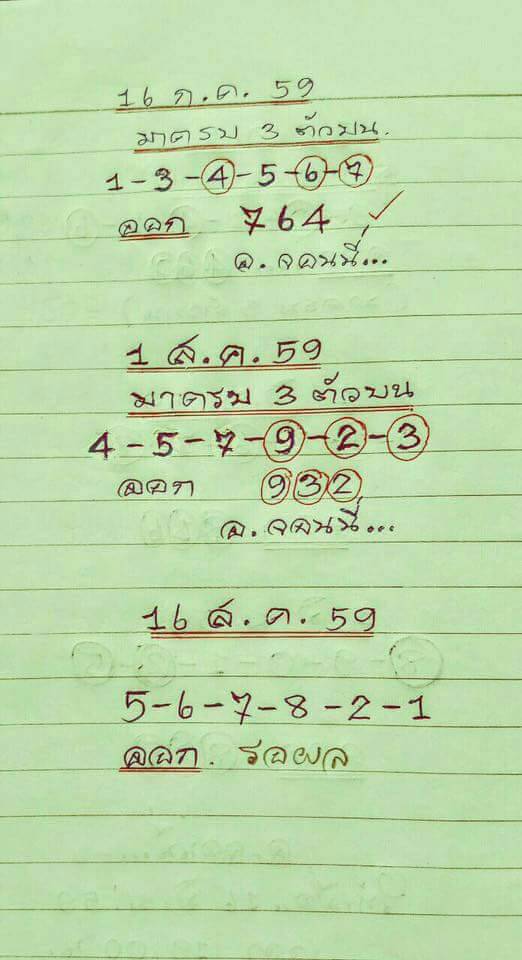 16 ก.ค. 59
มาครบ 3 ตัวบน.
1-3-4-5-6-7
ออก 764
อ.จอนนี่...
1 ส.ค. 59
มาครบ 3 ตัวบน
4-5-7-9-2-3
ออก 932
อ.จอนนี่...
16 ส.ค. 59
5-6-7-8-2-1
ออก. รอผล